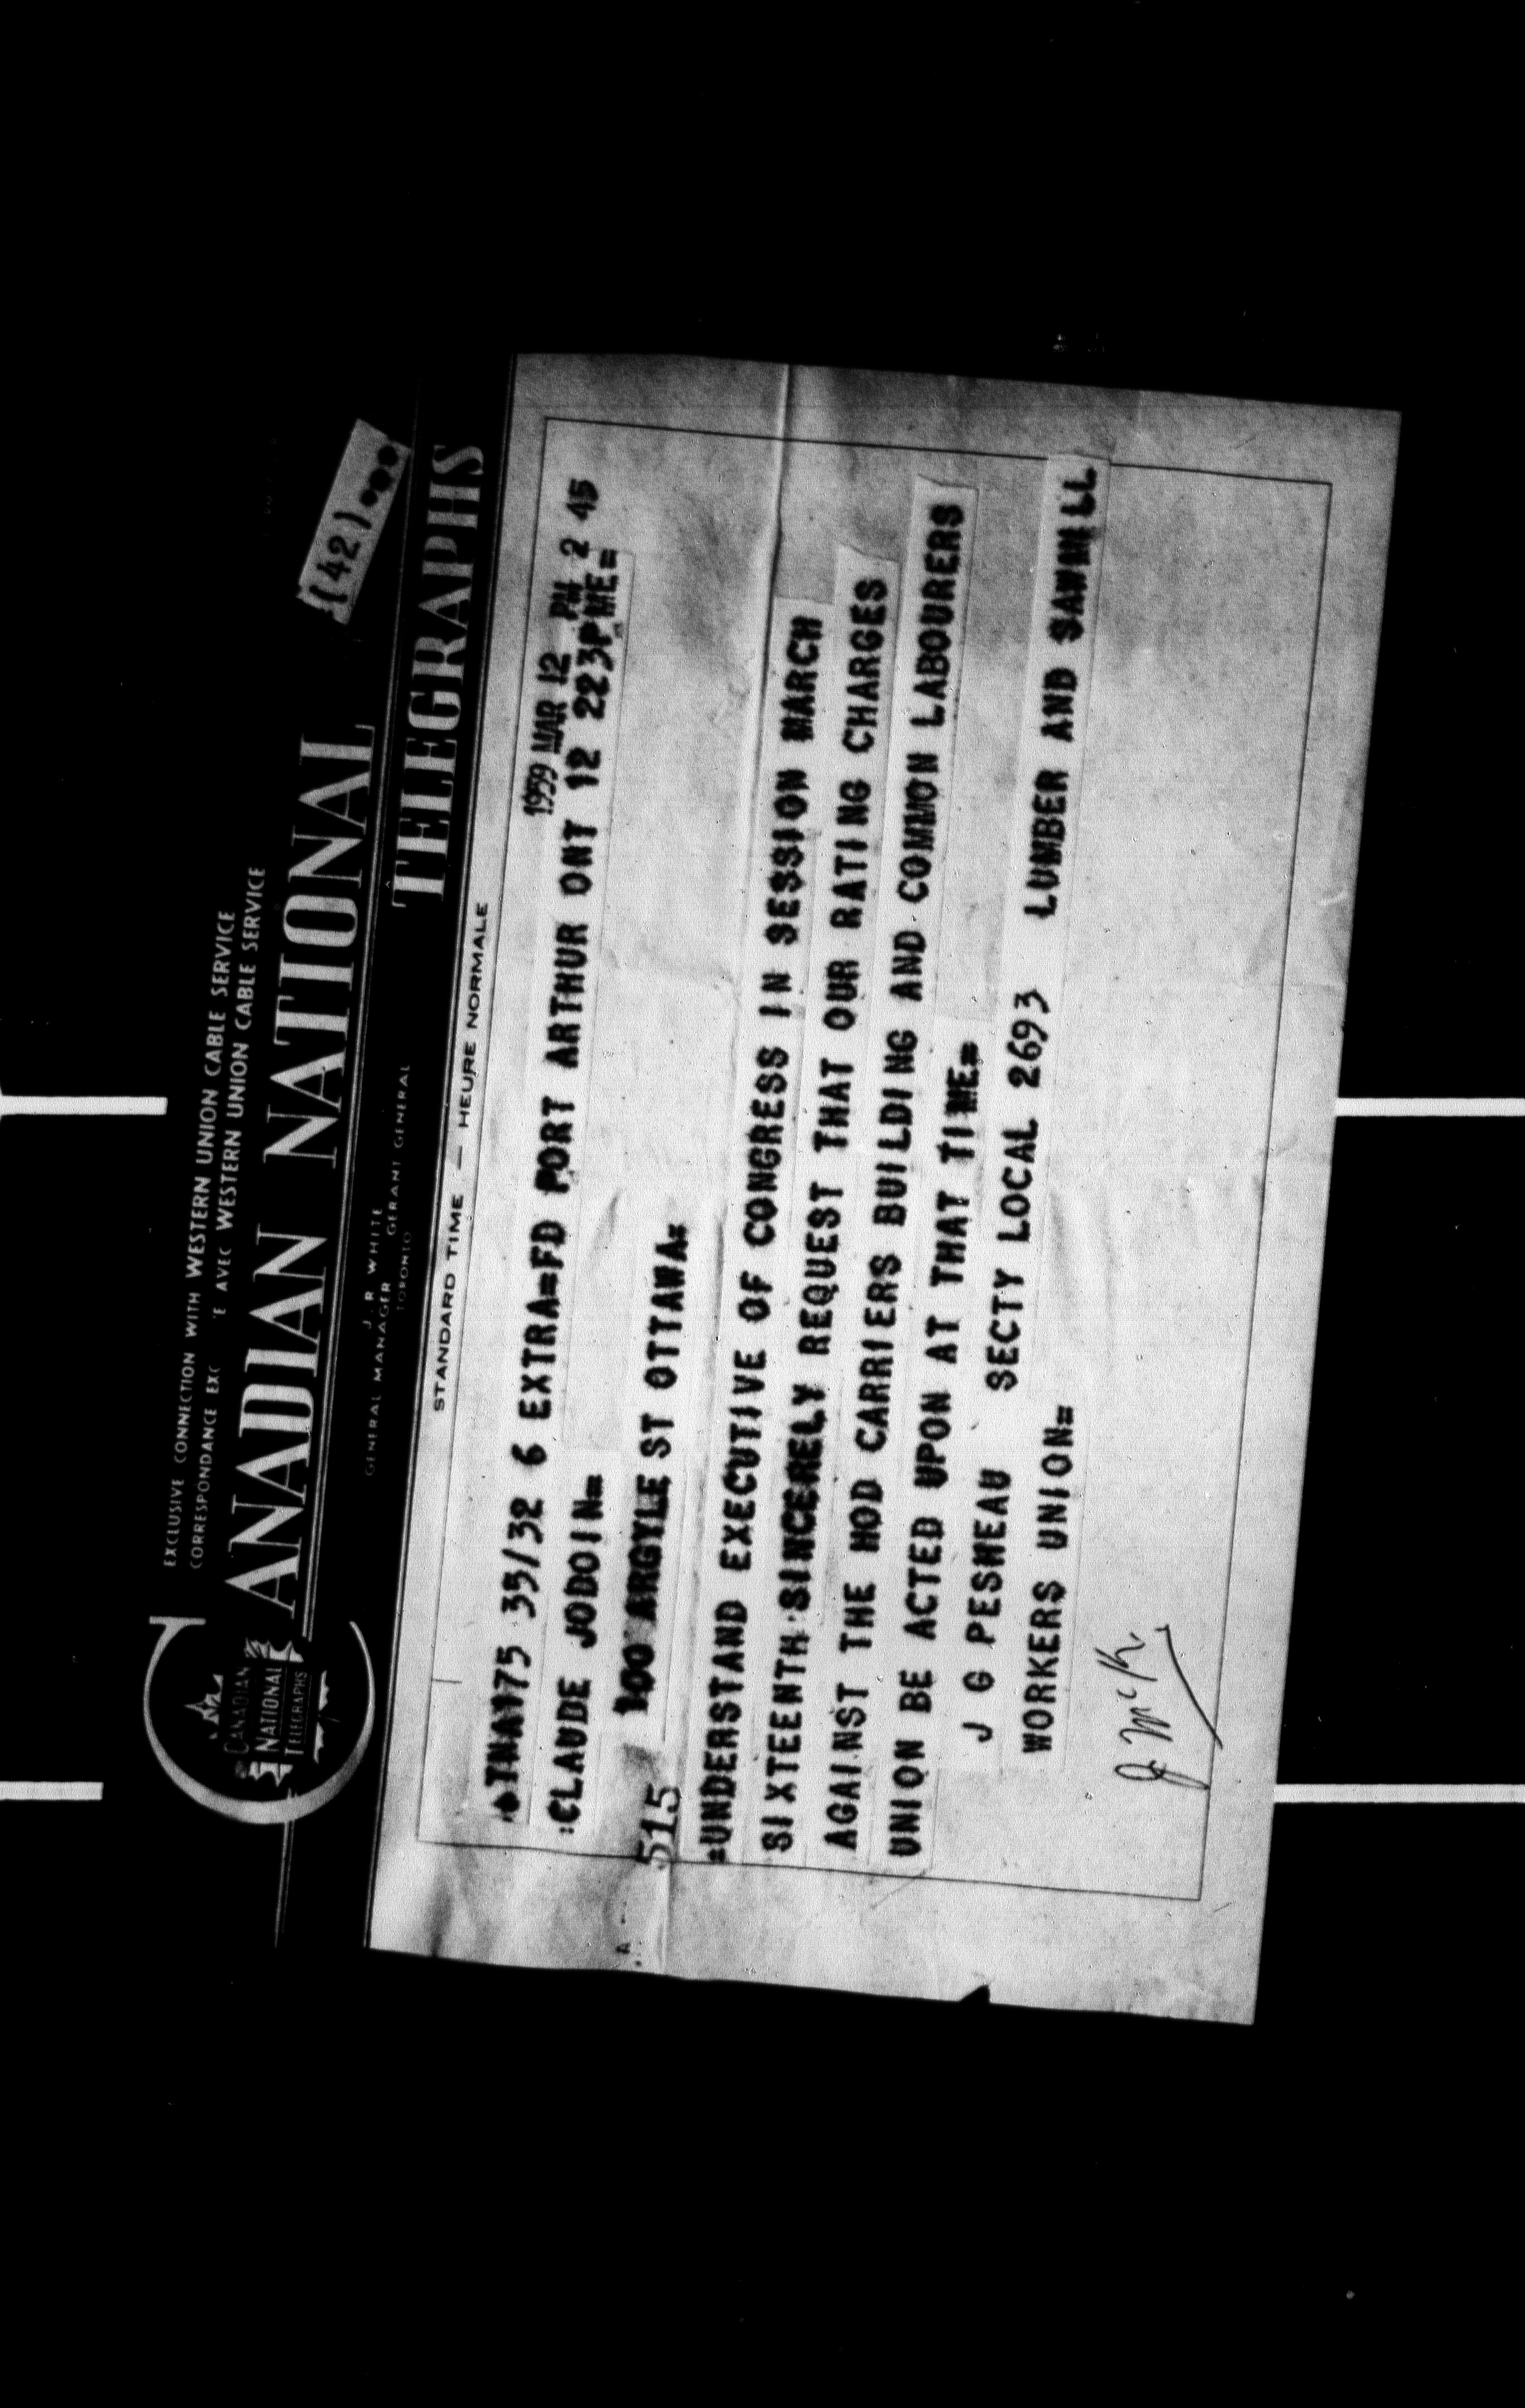 EXCLUSIVE CONNECTION WITH WESTERN UNION CABLE SERVICE
CORRESPONDANCE EXC 'E AVEC WESTERN UNION CABLE SERVICE
CANADIAN NATIONAL
(42)...
TELEGRAPHS
CANADIAN
NATIONAL
TELEGRAPHS
J. R. WHITE
GENERAL MANAGER GERANT GENERAL
TORONTO
STANDARD TIME — HEURE NORMALE
1959 MAR 12 PM 2 45
TNA175 35/32 6 EXTRA=FD PORT ARTHUR ONT 12 223PME=
:CLAUDE JODOIN=
100 ARGYLE ST OTTAWA=
515
=UNDERSTAND EXECUTIVE OF CONGRESS IN SESSION MARCH
SIXTEENTH SINCERELY REQUEST THAT OUR RATING CHARGES
AGAINST THE HOD CARRIERS BUILDING AND COMMON LABOURERS
UNION BE ACTED UPON AT THAT TIME=
J G PESHEAU SECTY LOCAL 2693 LUMBER AND SAWMILL
WORKERS UNION=
J McK